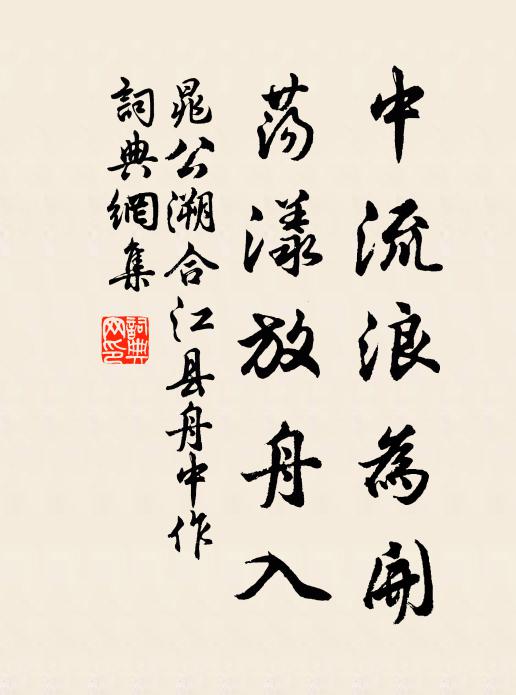 中流浪為開
蕩漾放舟入
晁公溯合江县舟中作
詞典網集
詞典
网印